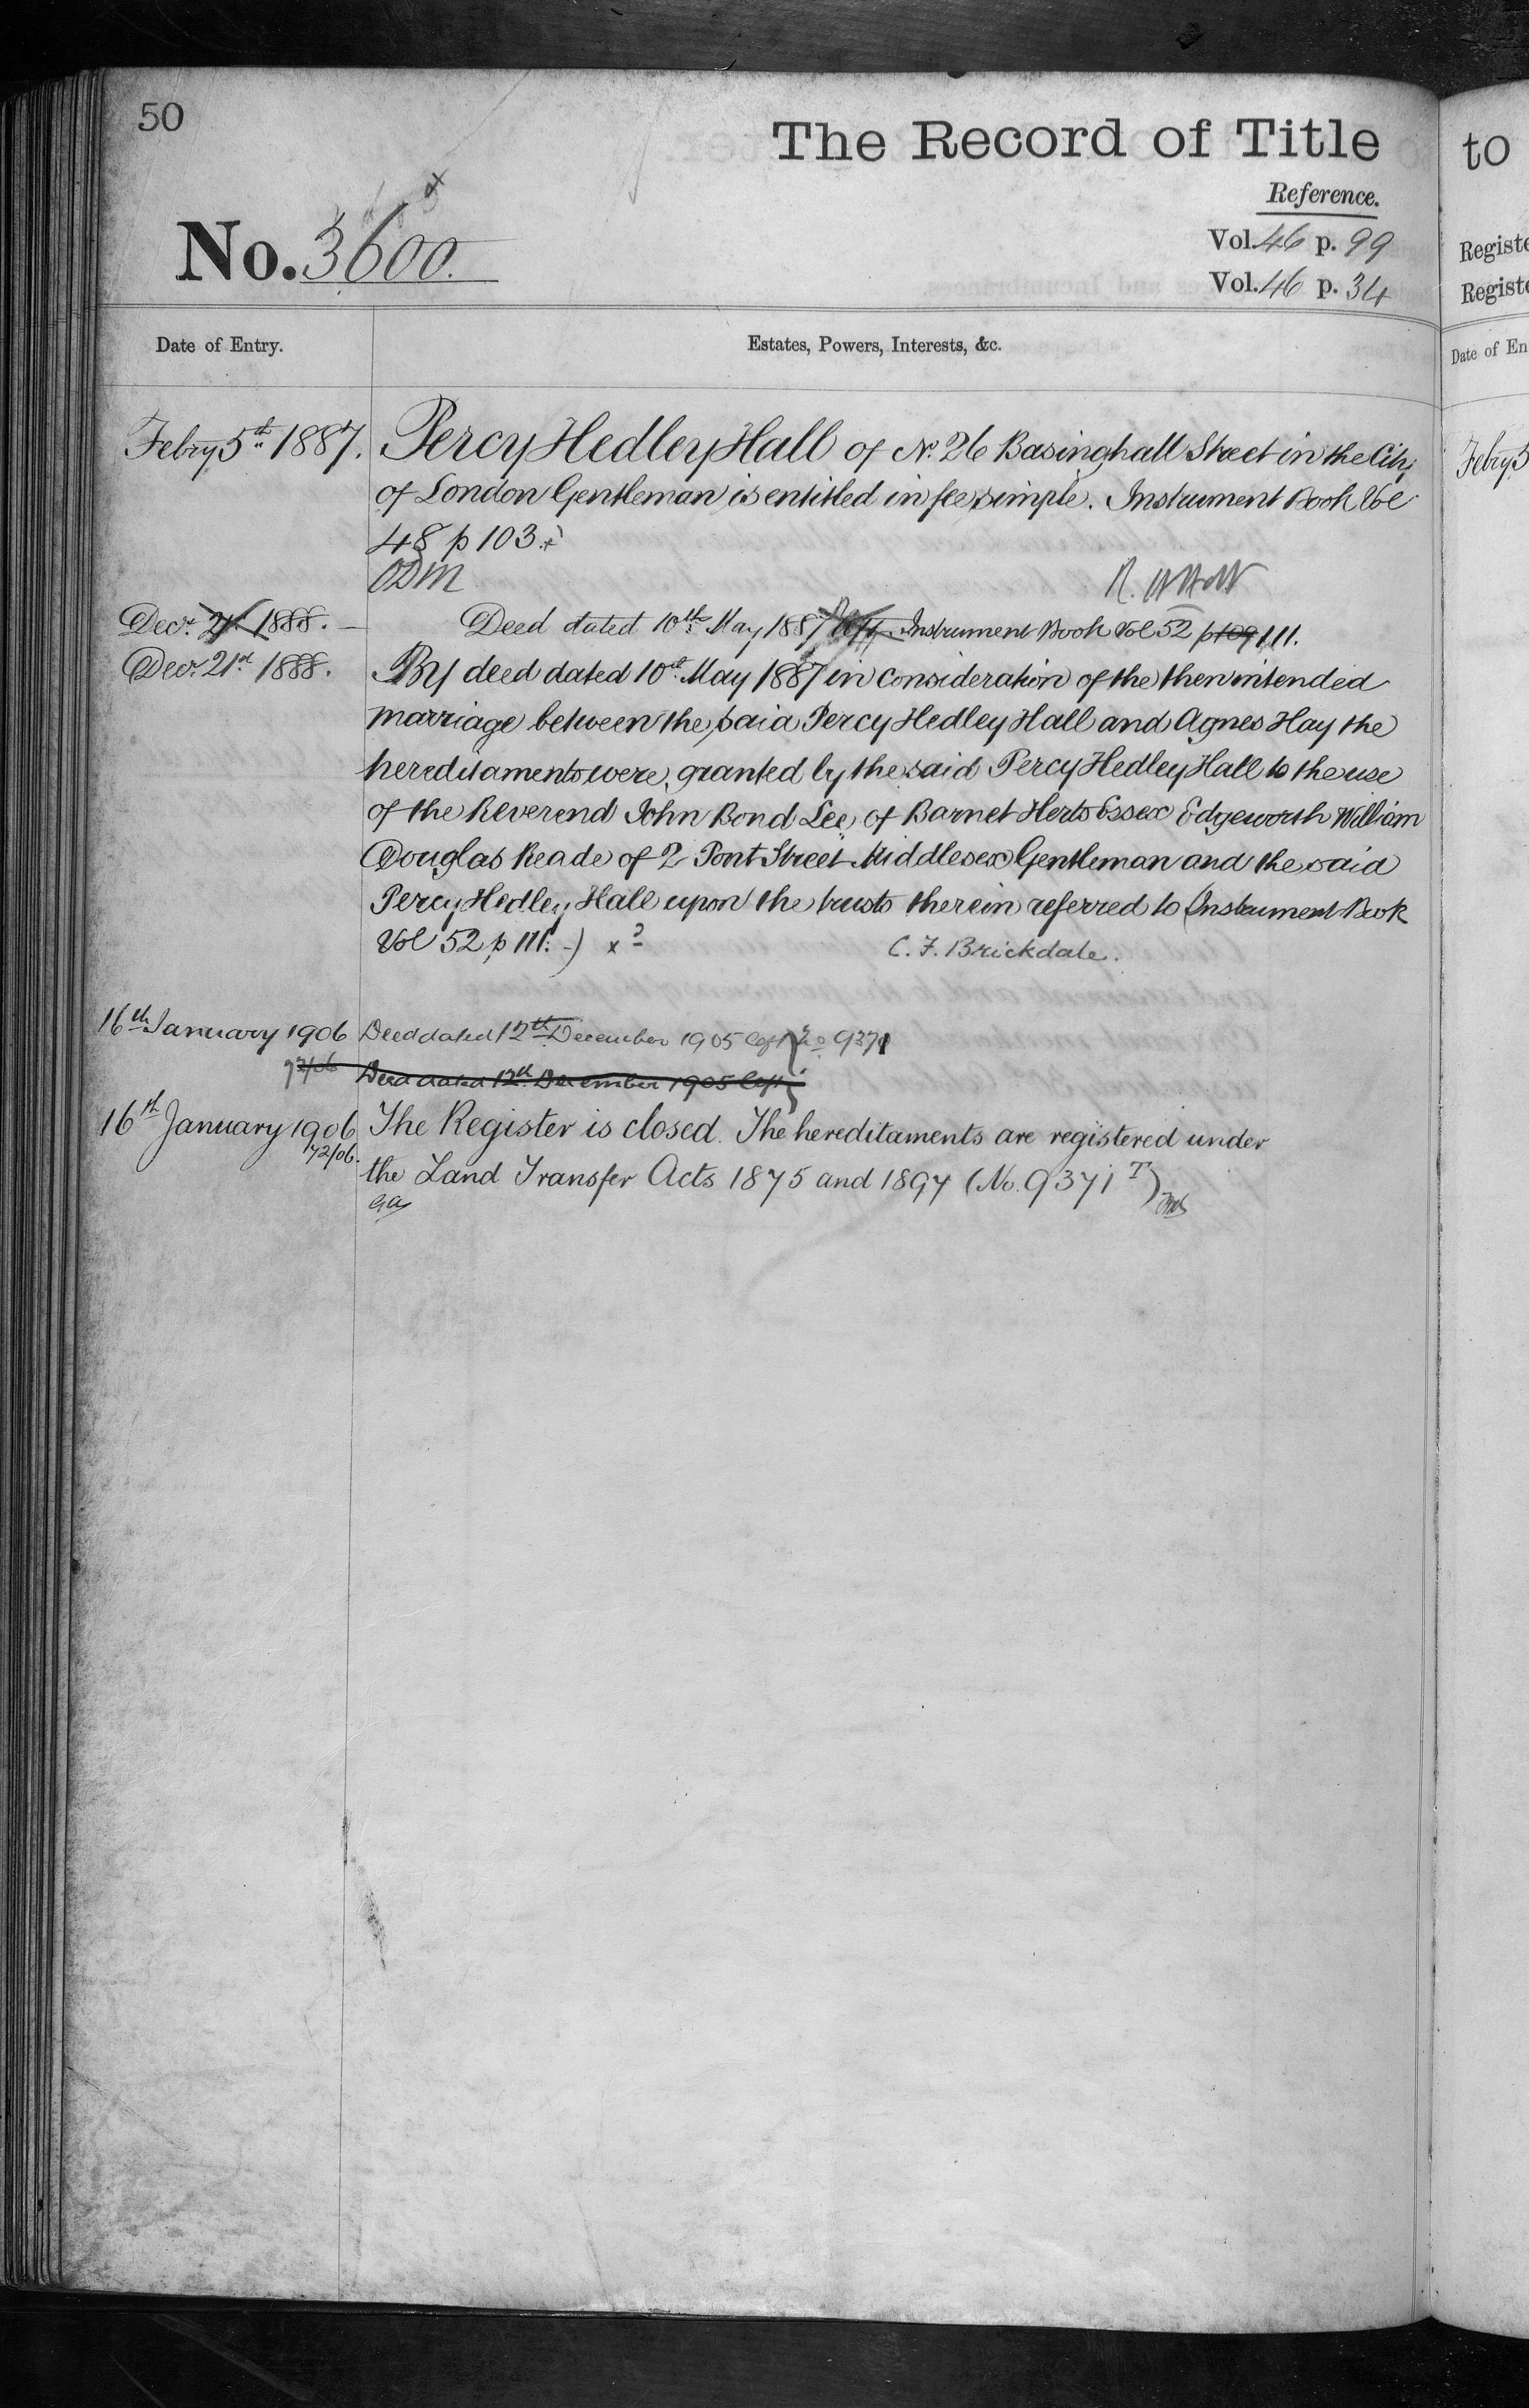 50
The Record of Title
to
Reference.
No. 3600.
Vol. 46 p. 99
Vol. 46 p. 34
Registe
Registe
Date of Entry.
Estates, Powers, Interests, &c.
Date of En
Febry 5th 1887.
Percy Hedley Hall of No. 26 Basinghall Street in the City
Febry 5
of London Gentleman is entitled in fee simple. Instrument Book Vol
48 p 103.
ODM
Decr. 21st 1888. Deed dated 10th May 1887 left. Instrument Book Vol 52 p 109 111.
Decr. 21st 1888. By deed dated 10th May 1887 in consideration of the then intended
marriage between the said Percy Hedley Hall and Agnes Hay the
hereditaments were granted by the said Percy Hedley Hall to the use
of the Reverend John Bond Lee of Barnet Herts Essex Edgeworth William
Douglas Reade of 2 Pont Street Middlesex Gentleman and the said
Percy Hedley Hall upon the trusts therein referred to (Instrument Book
Vol 52 p 111.) x C. F. Brickdale.
16th January 1906 Deed dated 12th December 1905 left } No 9371
Deed dated 12th December 1905 left
16th January 1906 The Register is closed. The hereditaments are registered under
72/06.
the Land Transfer Acts 1875 and 1897 (No. 9371 T)